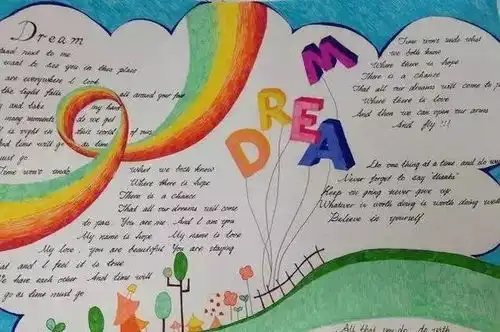 Dream
stand next to me
want to see you in this place
are everywhere I look
the light falls all around your face
and take my hand
many moments do we get
is right in this world of ours
And time will go as time
must go
Time won't undo
what we both know
Where there is hope
There is a chance
That all our dreams will come
to pass. You are me. And I am you
My name is hope My name is love
My love, you are beautiful You are staying
at and I feel it is true
We have each other And time will
go as time must go
DREAM
Time won't undo what
we both know
Where there is hope
There is a chance
That all our dreams will come to
Where there is love
And then we can open our arms
And fly !!!
Do one thing at a time, and do
Never forget to say thanks
Keep on going never give up
Whatever is worth doing is worth doing well
Believe in yourself
All that you do, do with